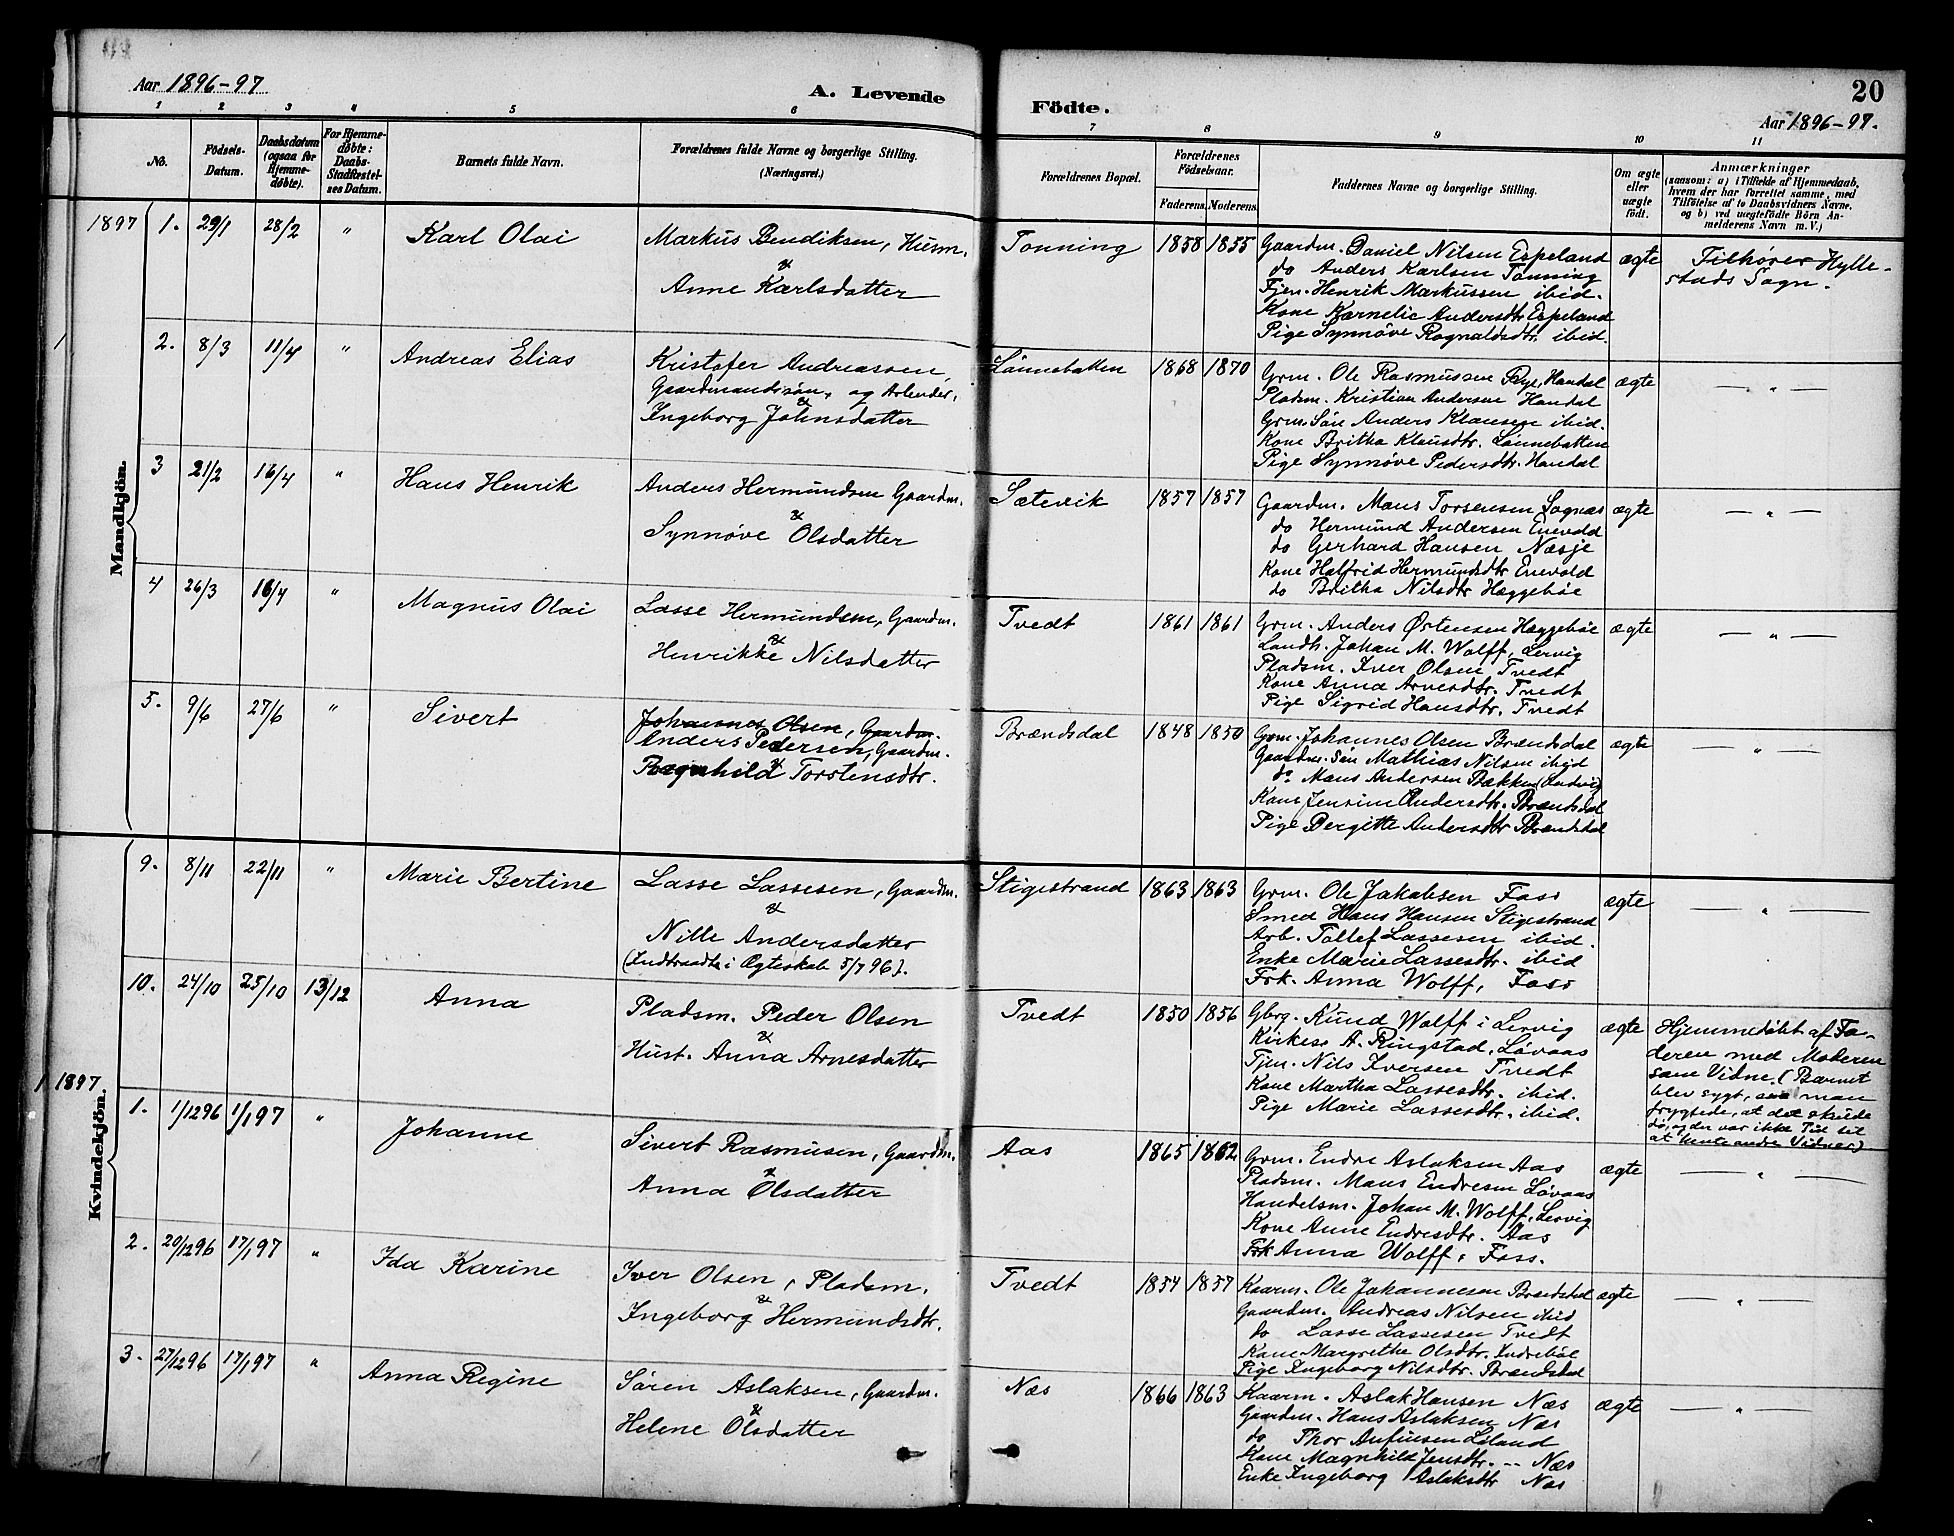 Aar 1896-97
A. Levende
Födte.
20
Aar 1896-97.
1 2 3 4 5 6 7 8 9 10 11
No.
Födsels-
Datum.
Daabsdatum
(ogsaa for
Hjemme-
døbte).
For Hjemme-
døbte:
Daabs-
Stadfæstel-
ses Datum.
Barnets fulde Navn.
Forældrenes fulde Navne og borgerlige Stilling.
(Næringsvei.)
Forældrenes Bopæl.
Forældrenes
Födselsaar.
Faderens. Moderens.
Faddernes Navne og borgerlige Stilling.
Om ægte
eller
uægte
födt.
Anmærkninger
(saasom: a) i Tilfælde af Hjemmedaab,
hvem der har forrettet samme, med
Tilföielse af to Daabsvidners Navne,
og b) ved uægtefödte Börn An-
melderens Navn m.V.)
Mandkjön.
1897 1. 29/1 28/2 " Karl Olai
Markus Bendiksen, Husm.
&
Anne Karlsdatter
Tonning 1858 1855
Gaardm. Daniel Nilsen Espeland
do Anders Karlsen Tonning
Tjen. Henrik Markussen ibid.
Kone Karnelie Andersdtr Espeland
Pige Synnøve Ragnaldsdtr. ibid.
ægte
Tilhører Hylle-
stads Sogn.
2. 8/3 11/4 " Andreas Elias
Kristofer Andreassen,
Gaardmandssøn, og Arbeider,
&
Ingeborg Johnsdatter
Lønnebakken 1868 1870
Grm. Ole Rasmussen Rye, Handal
Pladsm. Kristian Andersen Handal
Grm. Søn Anders Klausen ibid.
Kone Britha Klausdtr. Lønnebakken
Pige Synnøve Pedersdtr. Handal
ægte
— " —
3 21/2 16/4 " Hans Henrik
Anders Hermundsen Gaardm.
&
Synnøve Olsdatter
Sætevik 1857 1857
Gaardm. Mans Torsensen Sognæs
do Hermund Andersen Enevold
do Gerhard Hansen Næsje
Kone Halfrid Hermundsdtr Enevold
do Britha Nilsdtr Hæggebøe
ægte
— " —
4 26/3 16/4 " Magnus Olai
Lasse Hermundsen, Gaardm.
&
Henrikke Nilsdatter
Tvedt 1861 1861
Grm. Anders Østensen Hæggebøe
Landh. Johan M. Wolff, Lervig
Pladsm. Iver Olsen Tvedt
Kone Anna Arnesdtr. Tvedt
Pige Sigrid Hansdtr. Tvedt
ægte
— " —
5. 9/6 27/6 " Sivert
Johannes Olsen, Gaardm.
Anders Pedersen, Gaardm.
&
Ragnhild Torstensdtr.
Brændsdal 1848 1850
Grm. Johannes Olsen Brændsdal
Gaardm. Søn Mathias Nilsen ibid
do Mans Andersen Bækken
Kone Jensine Andersdtr. Brændsdal
Pige Bergitte Andersdtr Brændsdal
ægte
— " —
Kvindekjön.
9. 8/11 22/11 " Marie Bertine
Lasse Lassesen, Gaardm.
&
Nille Andersdatter
(Indtraadte i Ægteskab 5/7 96).
Stigestrand 1863 1863
Grm. Ole Jakobsen Foss
Smed Hans Hansen Stigestrand
Arb. Tollef Lassesen ibid.
Enke Marie Lassesdtr. ibid
Frk. Anna Wolff, Foss
ægte
— " —
10. 24/10 25/10 13/12 Anna
Pladsm. Peder Olsen
&
Hust. Anna Arnesdatter
Tvedt 1850 1856
Gbrg. Knud Wolff i Lervig
Kirkess A. Ringstad, Løvaas
Tjen. Nils Iversen Tvedt
Kone Martha Lassesdtr. ibid.
Pige Marie Lassesdtr. ibid.
ægte
Hjemmedøbt af Fa-
deren med Moderen
som Vidne. (Barnet
blev sygt, man
frygtede, at det skulde
dø, og der var ikke Tid til
at hente andre Vidner)
1897. 1. 1/12 96 1/1 97 " Johanne
Sivert Rasmussen, Gaardm.
&
Anna Olsdatter
Aas 1865 1862
Grm. Endre Aslaksen Aas
Pladsm. Mans Endresen Løvaas
Handelsm. Johan M. Wolff, Lervig
Kone Anne Endresdtr. Aas
Frk Anna Wolff, Foss.
ægte
— " —
2. 20/12 96 17/1 97 " Ida Karine
Iver Olsen, Pladsm.
&
Ingeborg Hermundsdtr.
Tvedt 1854 1857
Kaarm. Ole Johannesen Brændsdal
Gaardm. Andreas Nilsen ibid
do Lasse Lassesen Tvedt
Kone Margrethe Olsdtr. Indrebøe
Pige Ingeborg Nilsdtr. Brændsdal
ægte
— " —
3. 27/12 96 17/1 97 " Anna Regine
Søren Aslaksen, Gaardm.
&
Helene Olsdatter
Næs 1866 1863
Kaarm. Aslak Hansen Næs
Gaardm. Hans Aslaksen Næs
do Thor Anfinsen Løland
Kone Magnhild Jensdtr. -- Næs
Enke Ingeborg Aslaksdtr Næs
ægte
— " —